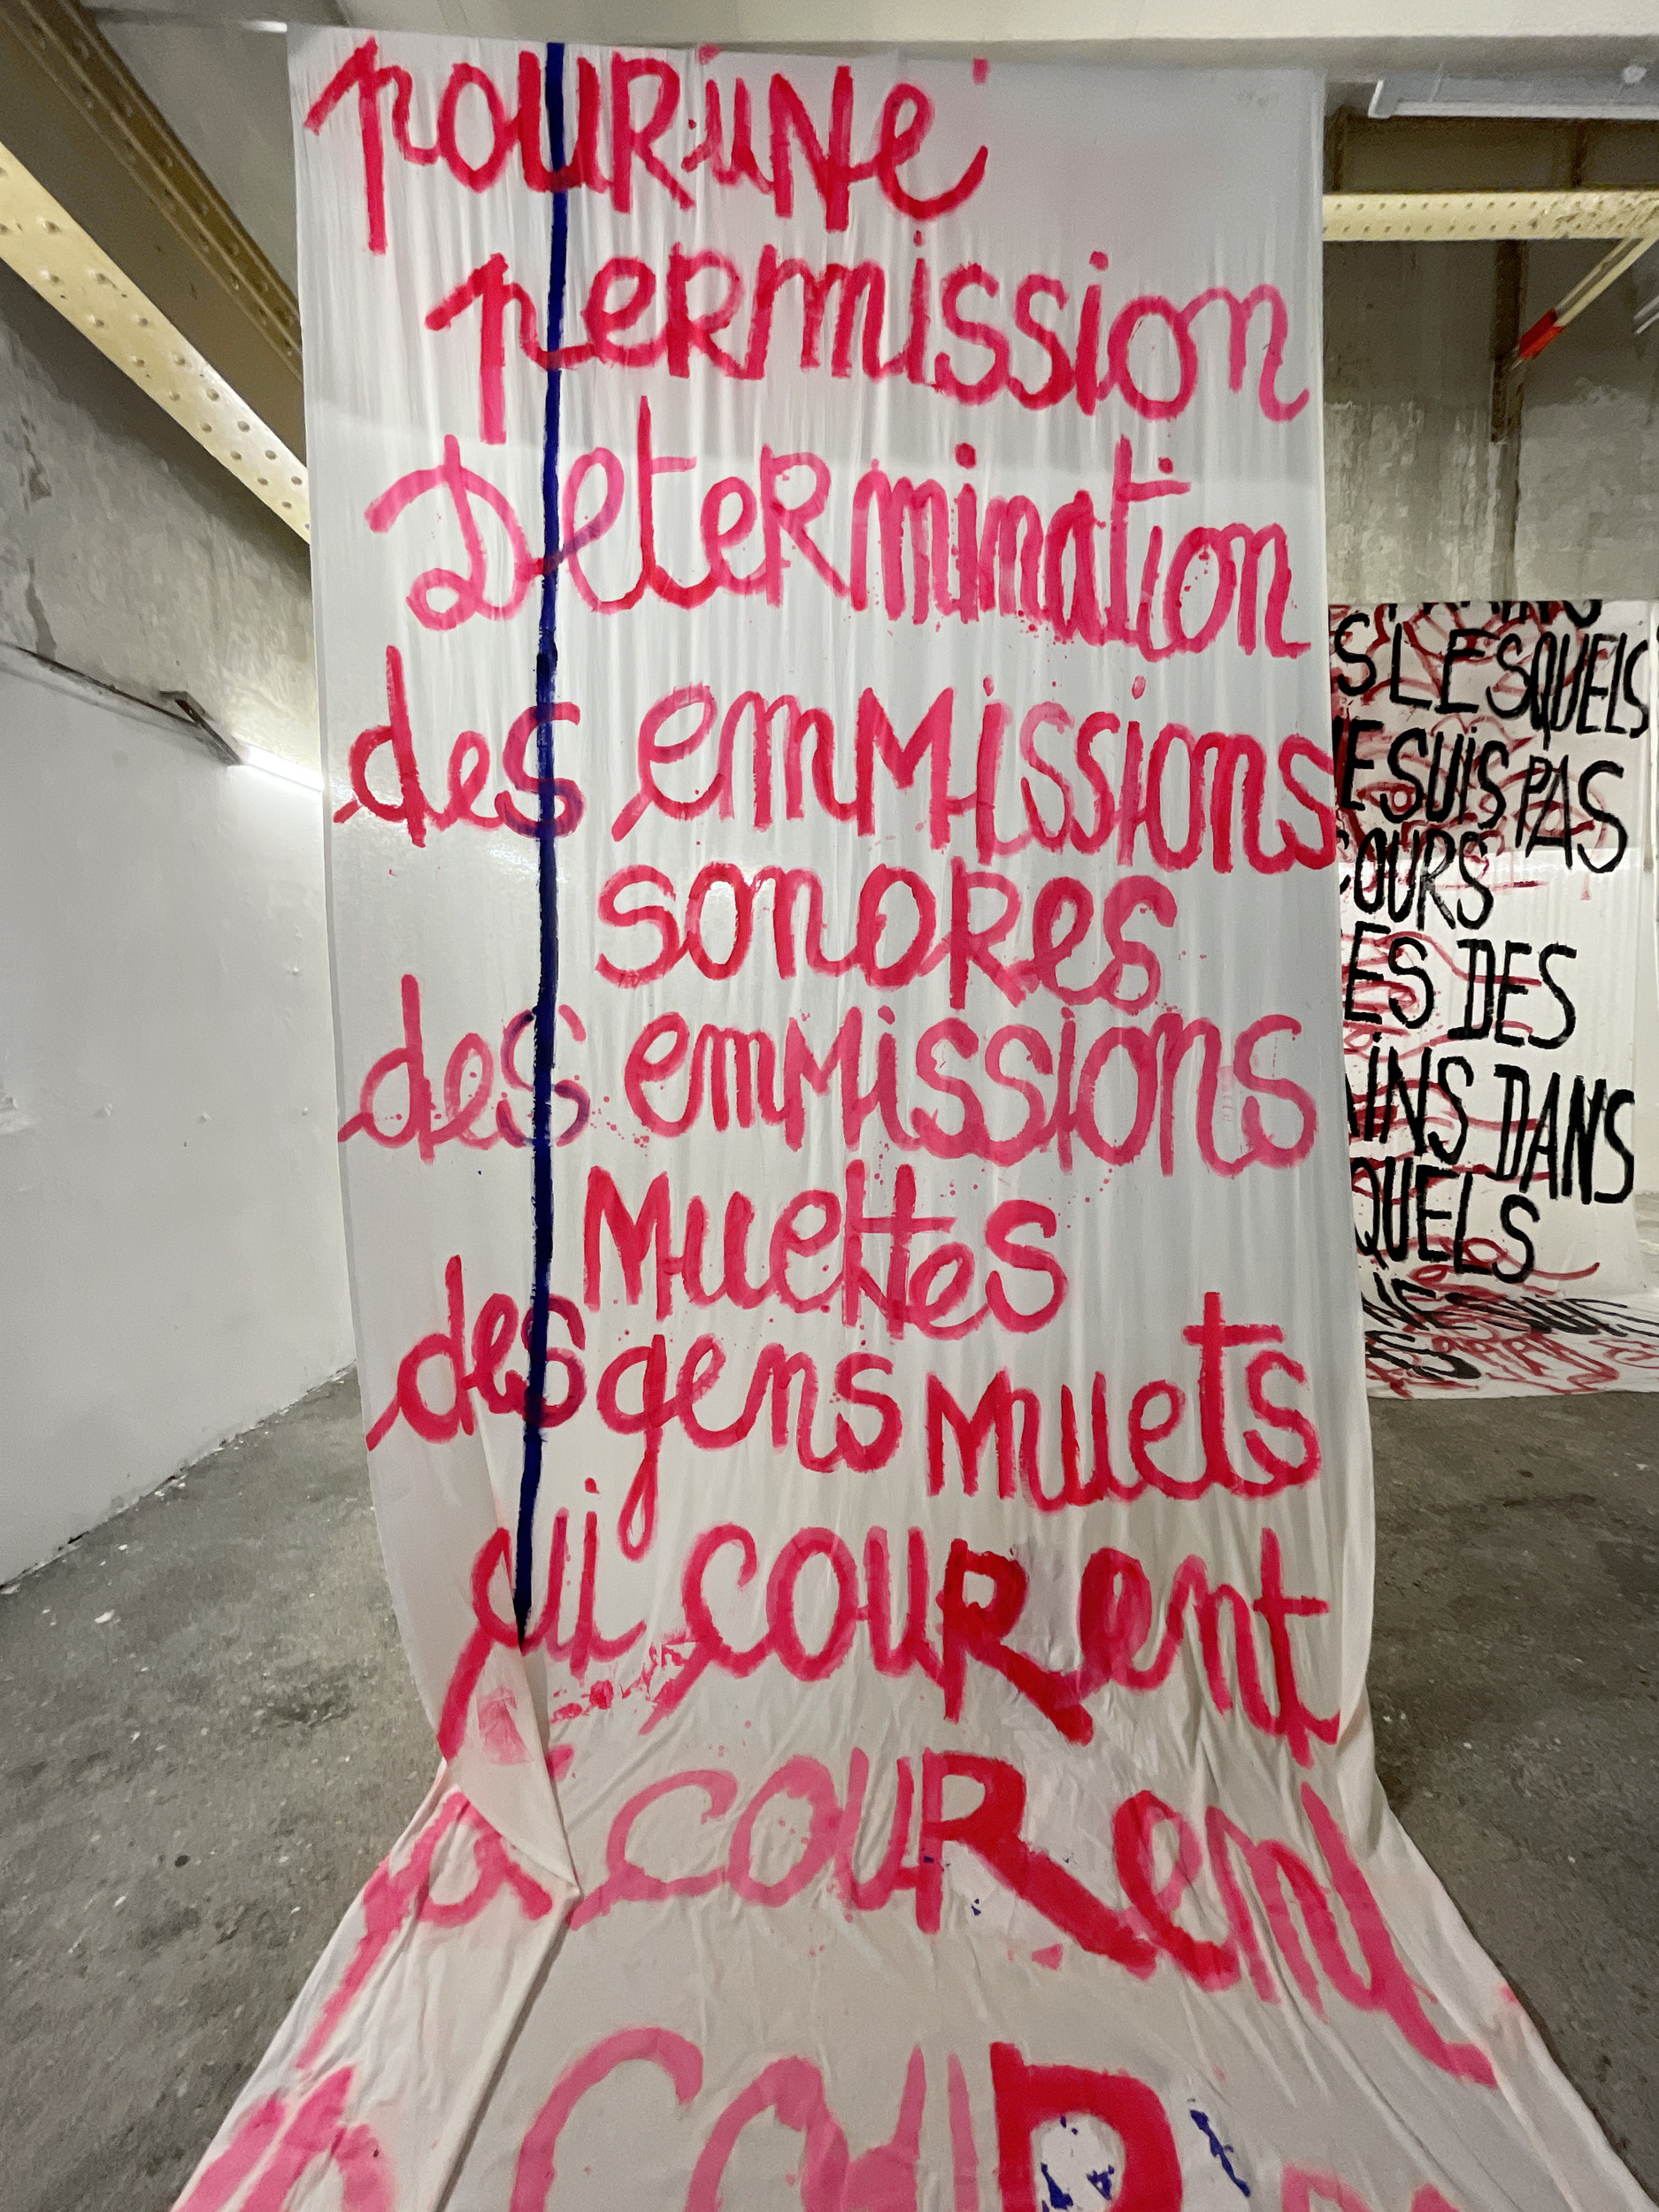 pOURUNe
peRmission
DéteRmination
des emMissions
sonoRes
des emMissions
Muettes
des gens Muets
qui COURent
COURent
COUR
S LESQUELS
E SUiS PAS
COURS
ES DES
AiNS DANS
QUELS